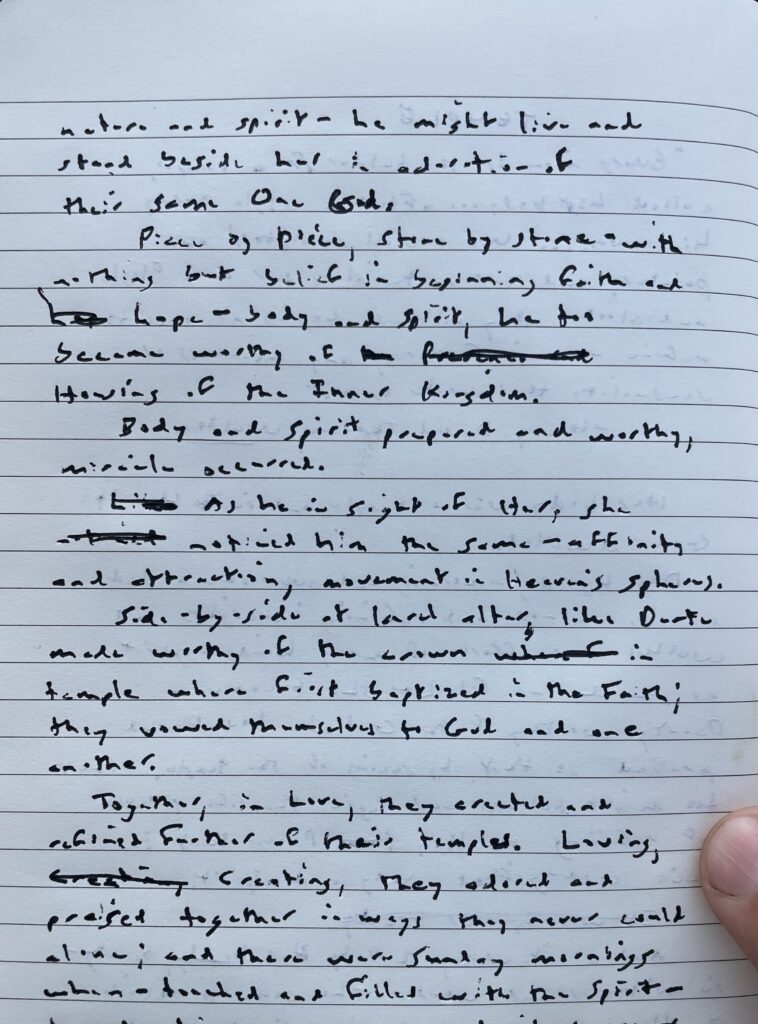 nature and spirit - he might live and
stand beside her in adoration of
their same One God.
Piece by piece, stone by stone - with
nothing but belief in beginning Faith and
hope - body and spirit, he too
became worthy of Presence and
Howing of the Inner Kingdom.
Body and spirit prepared and worthy,
miracle occurred.
As he in sight of Her, she
noticed him the same - affinity
and attraction, movement in Heaven's spheres.
Side-by-side at laurel alter, like Dante
made worthy of the crown in
temple where first baptized in the Faith;
they vowed themselves to God and one
another.
Together, in Love, they erected and
refined further of their temples. Loving,
Creating, they adored and
praised together in ways they never could
alone; and there were Sunday mornings
when - touched and filled with the Spirit -